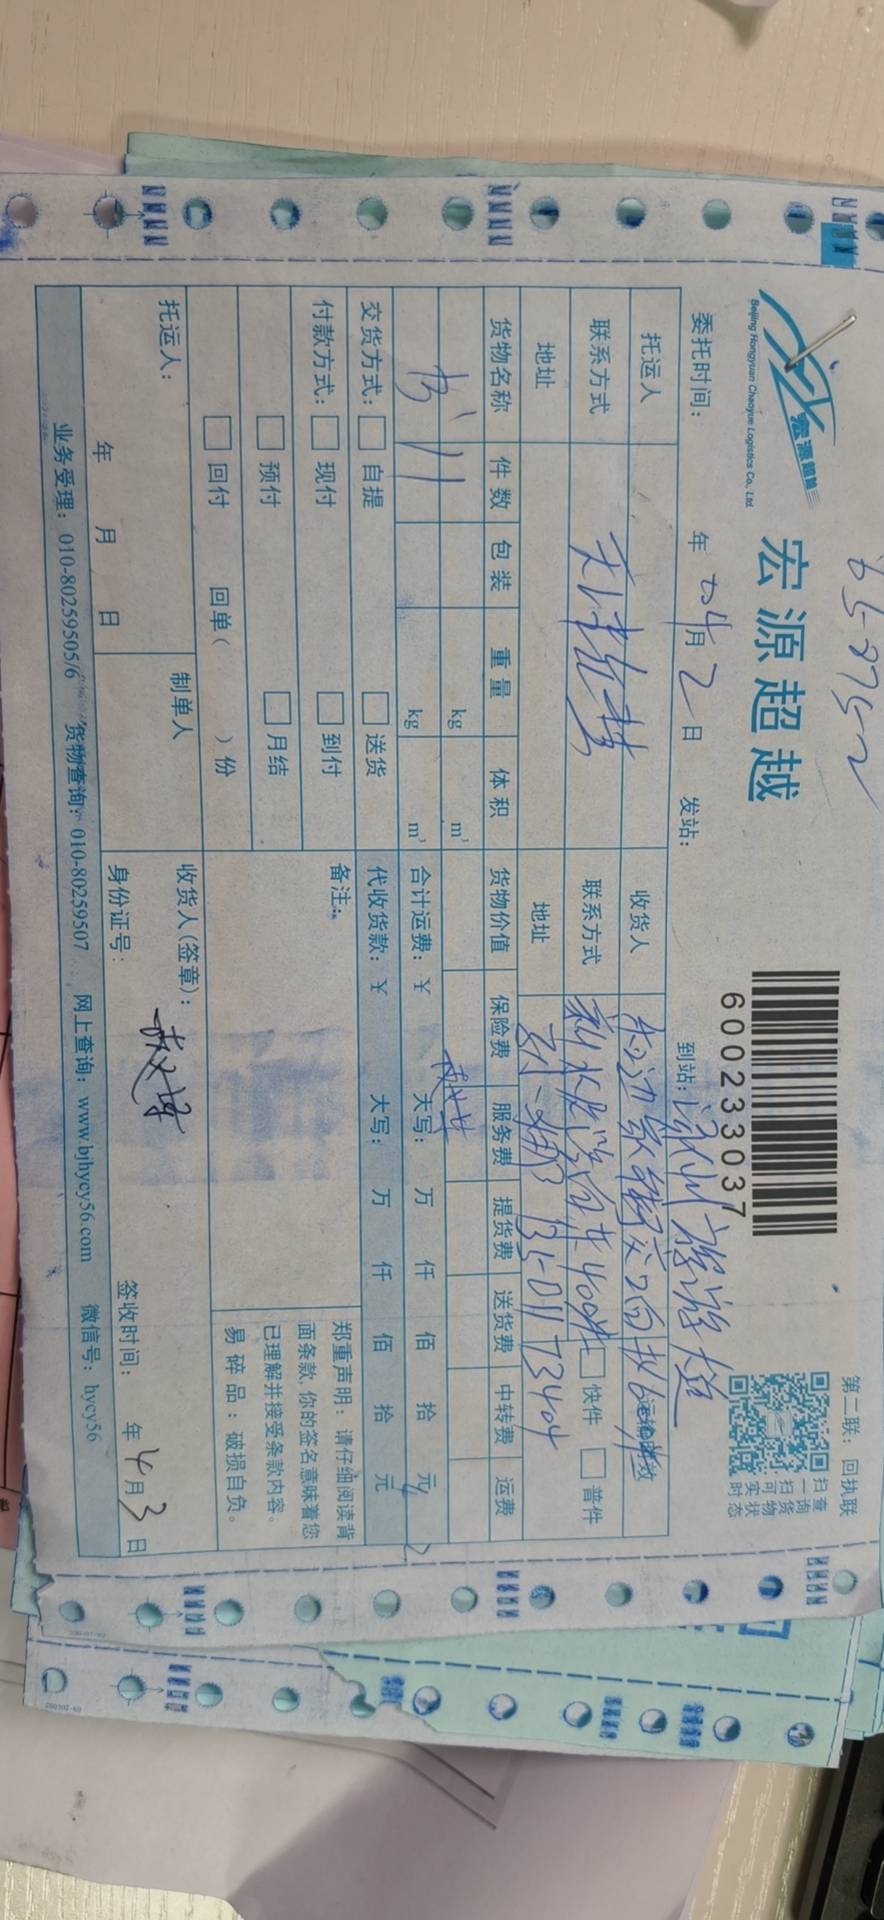 宏源超越
Beijing Hongyuan Chaoyue Logistics Co., Ltd.
宏源超越
600233037
第二联：回执联
扫查
一询
扫货
可物
实状
时态
委托时间： 年 04月 2日 发站： 到站：
托运人 收货人
联系方式 联系方式 快件 普件
地址 地址
货物名称 件数 包装 重量 体积 货物价值 保险费 服务费 提货费 送货费 中转费 运费
书 11 kg m³
kg m³ 合计运费：￥ 大写： 万 仟 佰 拾 元
交货方式： 自提 送货 代收货款：￥ 大写： 万 仟 佰 拾 元
付款方式： 现付 到付 备注：
预付 月结
回付 回单（ ）份
郑重声明：请仔细阅读背
面条款，你的签名意味着您
已理解并接受条款内容。
易碎品：破损自负。
托运人： 制单人 收货人（签章）：
年 月 日 身份证号： 签收时间： 年 4月 3日
业务受理：010-80259505/6 货物查询：010-80259507 网上查询：www.bjhycy56.com 微信号：hycy56